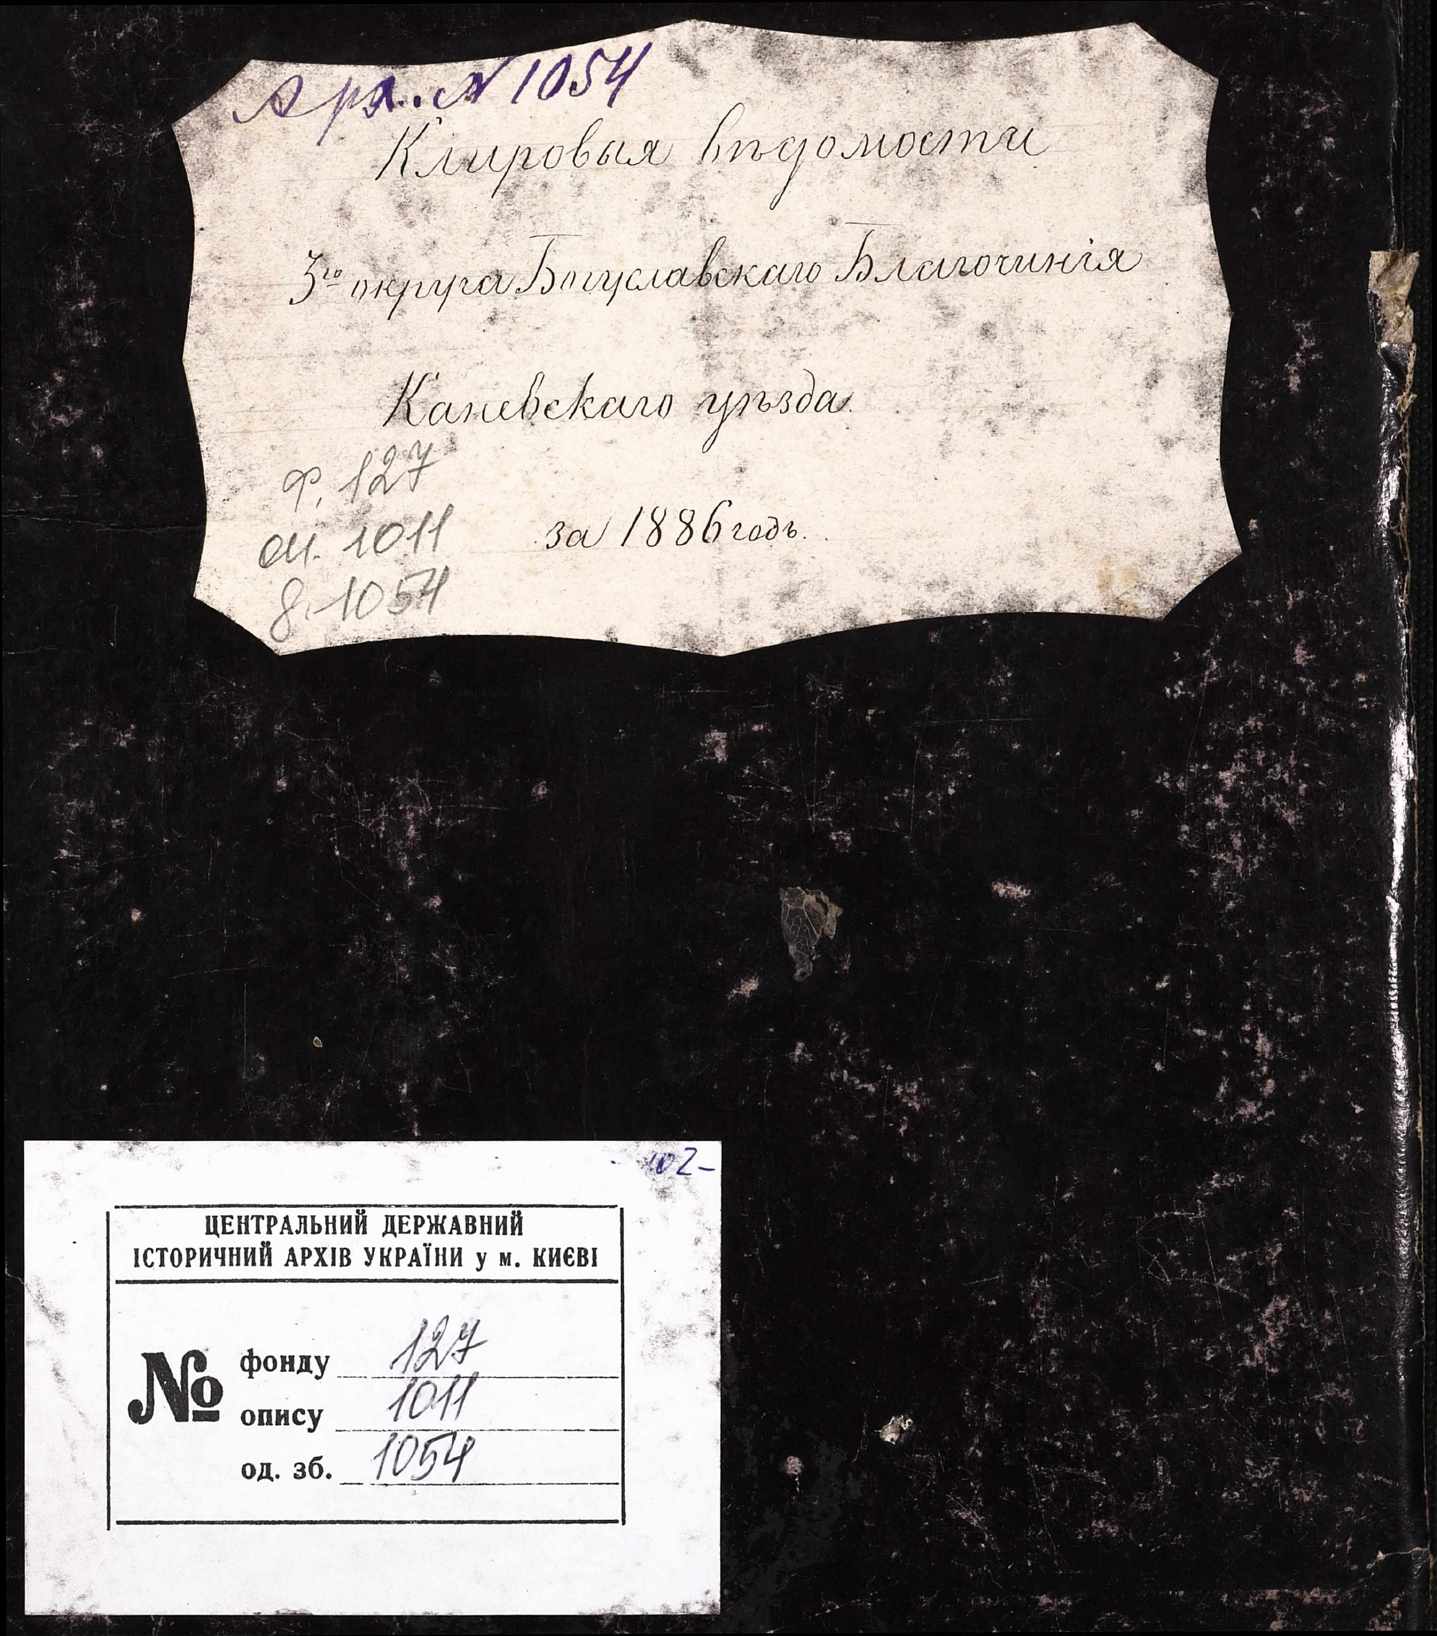 Арх. № 1054
Клировыя вѣдомости
3го округа Богуславскаго Благочинія
Каневскаго уѣзда
за 1886 годъ.
Ф. 127
оп. 1011
д. 1054
402-
ЦЕНТРАЛЬНИЙ ДЕРЖАВНИЙ
ІСТОРИЧНИЙ АРХІВ УКРАЇНИ у м. КИЄВІ
№
фонду 127
опису 1011
од. зб. 1054